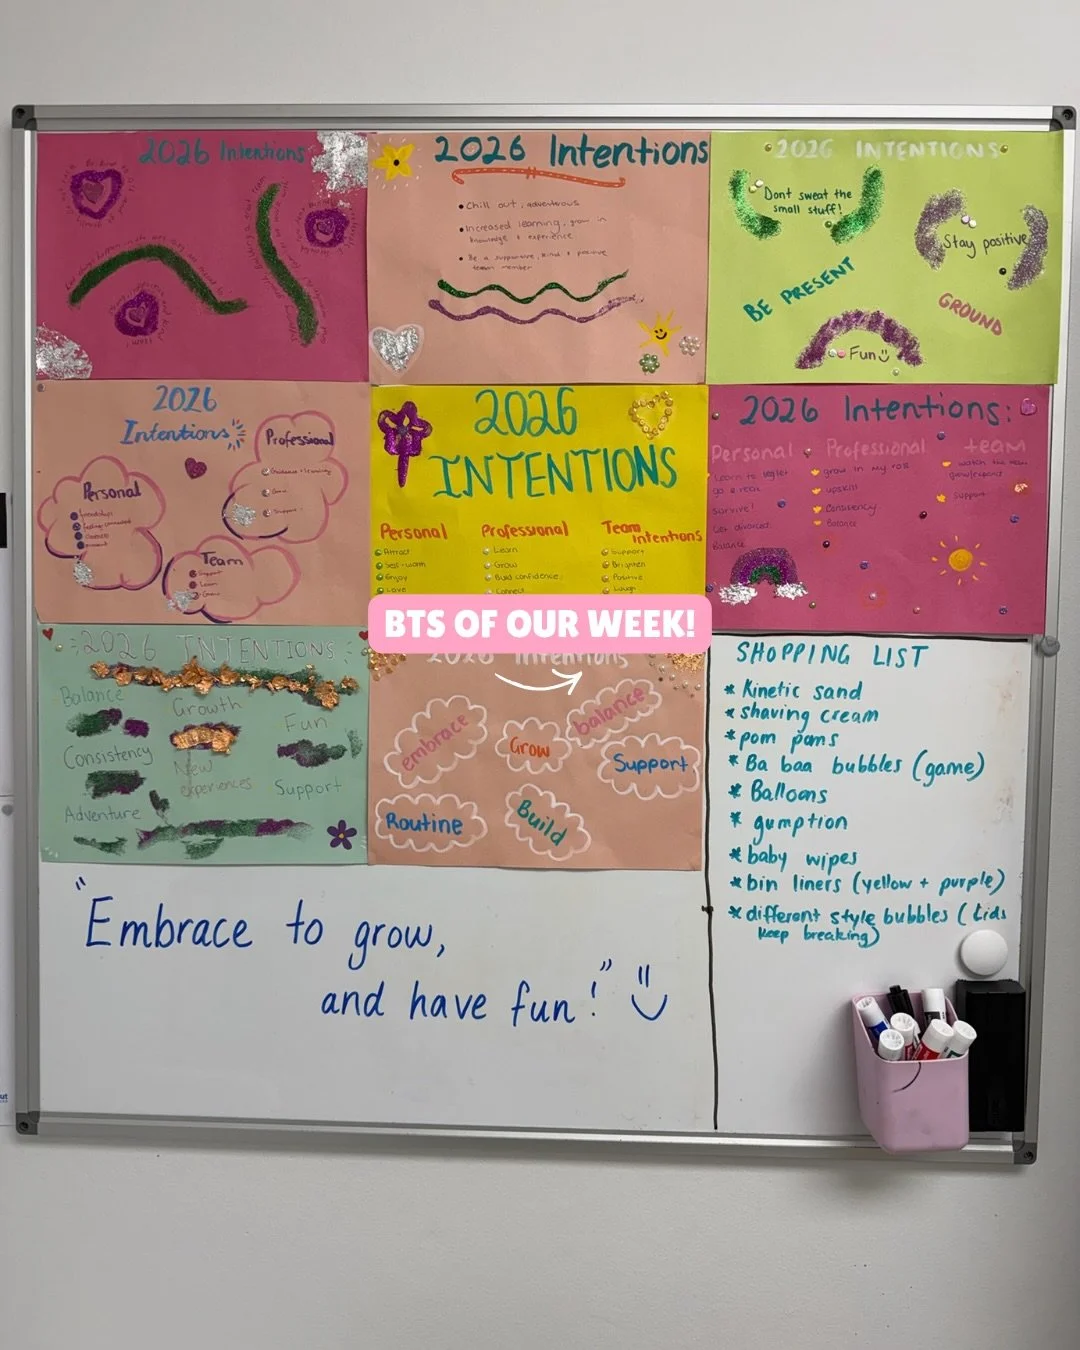 2026 Intentions
2026 Intentions
Chill out, adventerous
Increased learning, grow in
knowledge + experience
Be a supportive, kind + positive
team member
2026 INTENTIONS
Dont sweat the
small stuff!
Stay positive
BE PRESENT
GROUND
Fun
2026
Intentions
Personal
friendships
feeling connected
Professional
Guidance + learning
Grow
Support
Team
Support
Learn
Grow
2026
INTENTIONS
Personal
Attract
Self-worth
Enjoy
Love
Professional
Learn
Grow
Build confidence
Connect
Team
Intentions
Support
Brighten
Positive
Laugh
2026 Intentions:
Personal
Learn to
go & rest
Survive!
Get divorced
Balance
Professional
grow in my role
upskill
Consistency
Balance
team
watch the team
grow/expand
Support
BTS OF OUR WEEK!
2026 INTENTIONS
Balance
Growth
Fun
Consistency
New
experiences
Support
Adventure
2026 Intentions
embrace
Grow
balance
Support
Routine
Build
SHOPPING LIST
* Kinetic sand
* shaving cream
* pom poms
* Ba baa bubbles (game)
* Balloons
* gumption
* baby wipes
* bin liners (yellow + purple)
* different style bubbles (lids
keep breaking)
"Embrace to grow,
and have fun!"